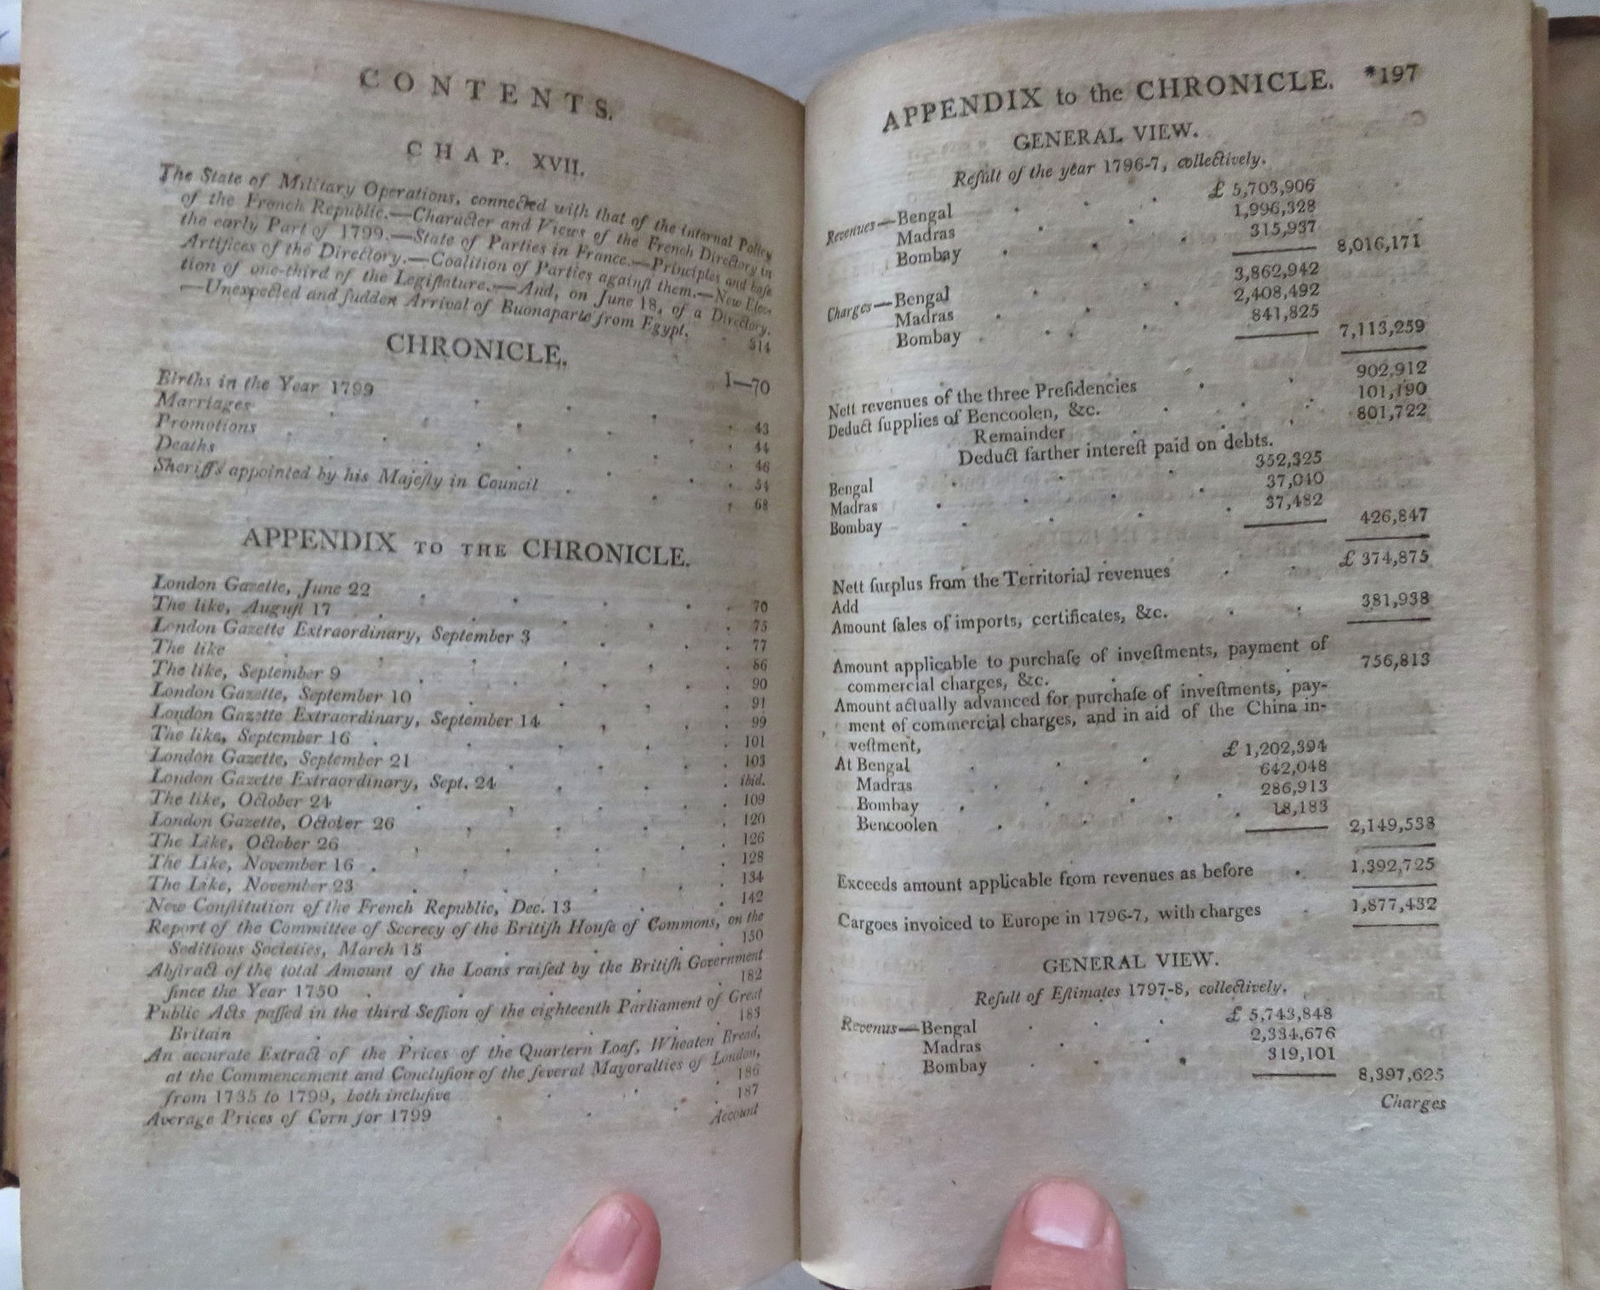 CONTENTS.
CHAP. XVII.
The State of Military Operations, connected with that of the internal Policy
of the French Republic.—Character and Views of the French Directory in
the early Part of 1799.—State of Parties in France.—Principles and baſe
Artifices of the Directory.—Coalition of Parties againſt them.—New Elec-
tion of one-third of the Legiſlature.—And, on June 18, of a Directory.
—Unexpected and ſudden Arrival of Buonaparte from Egypt. 514
CHRONICLE.
1—70
Births in the Year 1799 43
Marriages 44
Promotions 46
Deaths 54
Sheriffs appointed by his Majeſty in Council 68
APPENDIX TO THE CHRONICLE.
London Gazette, June 22 70
The like, Auguſt 17 75
London Gazette Extraordinary, September 3 77
The like 86
The like, September 9 90
London Gazette, September 10 91
London Gazette Extraordinary, September 14 99
The like, September 16 101
London Gazette, September 21 103
London Gazette Extraordinary, Sept. 24 ibid.
The like, October 24 109
London Gazette, October 26 120
The Like, October 26 126
The Like, November 16 128
The Like, November 23 134
New Conſtitution of the French Republic, Dec. 13 142
Report of the Committee of Secrecy of the Britiſh Houſe of Commons, on the
Seditious Societies, March 15 150
Abſtract of the total Amount of the Loans raiſed by the Britiſh Government
ſince the Year 1750 182
Public Acts paſſed in the third Seſſion of the eighteenth Parliament of Great
Britain 183
An accurate Extract of the Prices of the Quartern Loaf, Wheaten Bread,
at the Commencement and Concluſion of the ſeveral Mayoralties of London,
from 1735 to 1799, both incluſive 186
Average Prices of Corn for 1799 187
Account
APPENDIX to the CHRONICLE. *197
GENERAL VIEW.
Reſult of the year 1796-7, collectively.
Revenues—Bengal £ 5,703,906
Madras 1,996,328
Bombay 315,937
8,016,171
Charges—Bengal 3,862,942
Madras 2,408,492
Bombay 841,825
7,113,259
Nett revenues of the three Preſidencies 902,912
Deduct ſupplies of Bencoolen, &c. 101,190
Remainder 801,722
Deduct farther intereſt paid on debts.
Bengal 352,325
Madras 37,040
Bombay 37,482
426,847
Nett ſurplus from the Territorial revenues £ 374,875
Add
Amount ſales of imports, certificates, &c. 381,938
Amount applicable to purchaſe of inveſtments, payment of
commercial charges, &c. 756,813
Amount actually advanced for purchaſe of inveſtments, pay-
ment of commercial charges, and in aid of the China in-
veſtment,
At Bengal £ 1,202,394
Madras 642,048
Bombay 286,913
Bencoolen 18,183
2,149,538
Exceeds amount applicable from revenues as before 1,392,725
Cargoes invoiced to Europe in 1796-7, with charges 1,877,432
GENERAL VIEW.
Reſult of Eſtimates 1797-8, collectively.
Revenus—Bengal £ 5,743,848
Madras 2,334,676
Bombay 319,101
8,397,625
Charges